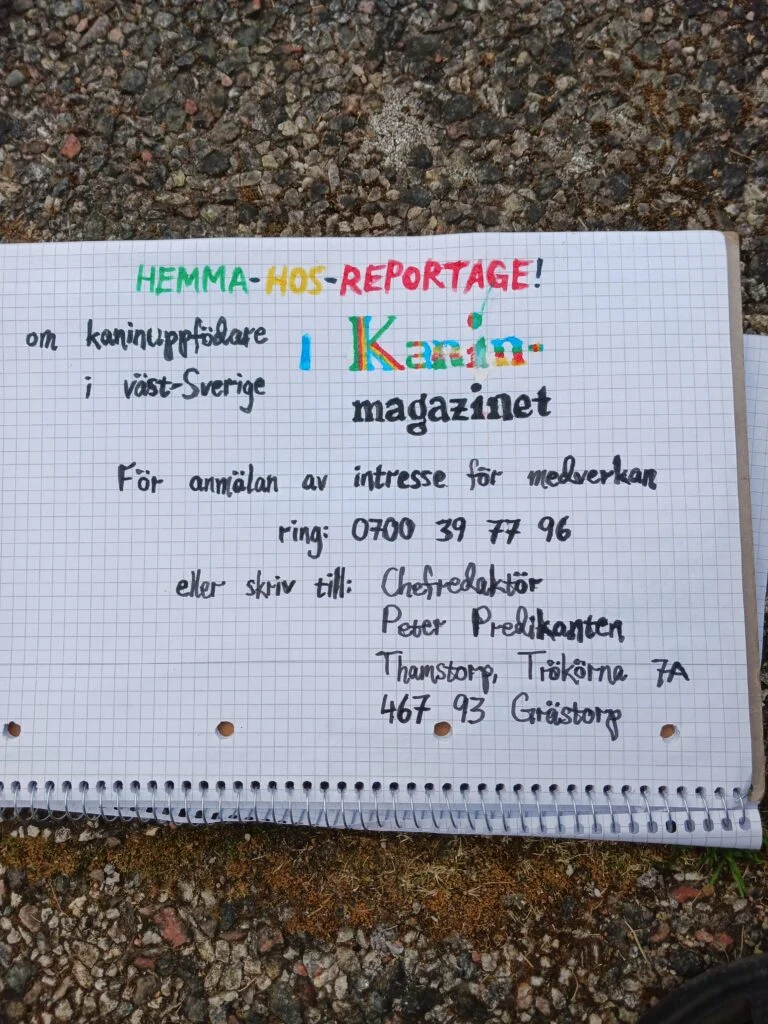 HEMMA-HOS-REPORTAGE!
om kaninuppfödare
i väst-Sverige
I Kanin-
magazinet
För anmälan av intresse för medverkan
ring: 0700 39 77 96
eller skriv till: Chefredaktör
Peter Predikanten
Thamstorp, Trökörna 7A
467 93 Grästorp